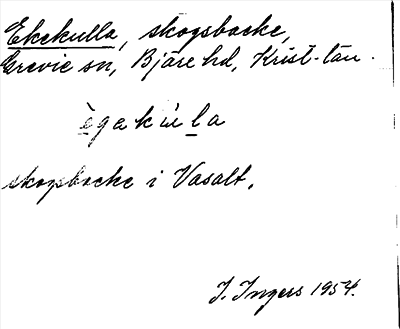 Ekekulla, skogsbacke,
Grevie sn, Bjäre hd, Krist-tan.
ègakùla
skogsbacke i Vasalt.
I. Ingers 1954.